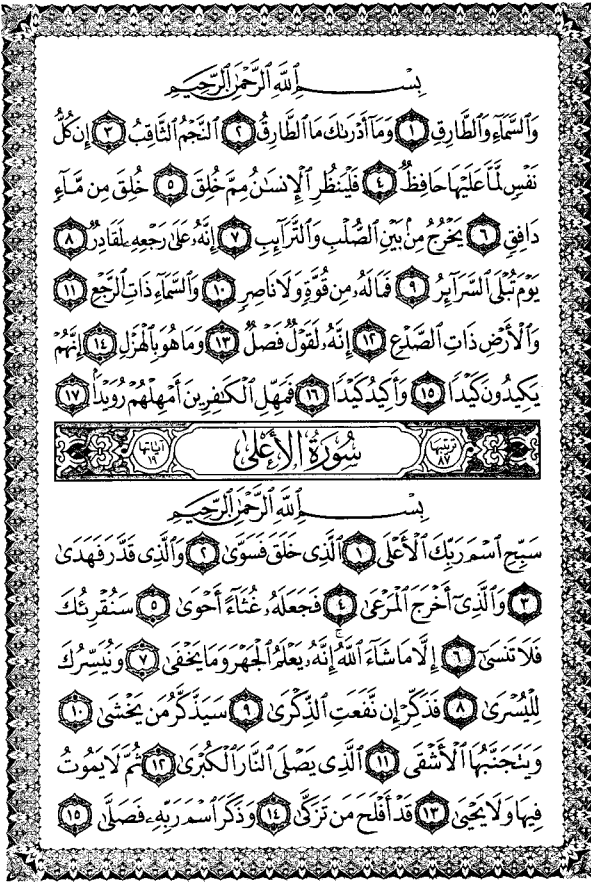 بِسْمِ ٱللَّهِ ٱلرَّحْمَٰنِ ٱلرَّحِيمِ
وَٱلسَّمَآءِ وَٱلطَّارِقِ ١ وَمَآ أَدْرَىٰكَ مَا ٱلطَّارِقُ ٢ ٱلنَّجْمُ ٱلثَّاقِبُ ٣ إِن كُلُّ
نَفْسٍ لَّمَّا عَلَيْهَا حَافِظٌ ٤ فَلْيَنظُرِ ٱلْإِنسَٰنُ مِمَّ خُلِقَ ٥ خُلِقَ مِن مَّآءٍ
دَافِقٍ ٦ يَخْرُجُ مِنۢ بَيْنِ ٱلصُّلْبِ وَٱلتَّرَآئِبِ ٧ إِنَّهُۥ عَلَىٰ رَجْعِهِۦ لَقَادِرٌ ٨
يَوْمَ تُبْلَى ٱلسَّرَآئِرُ ٩ فَمَا لَهُۥ مِن قُوَّةٍ وَلَا نَاصِرٍ ١٠ وَٱلسَّمَآءِ ذَاتِ ٱلرَّجْعِ ١١
وَٱلْأَرْضِ ذَاتِ ٱلصَّدْعِ ١٢ إِنَّهُۥ لَقَوْلٌ فَصْلٌ ١٣ وَمَا هُوَ بِٱلْهَزْلِ ١٤ إِنَّهُمْ
يَكِيدُونَ كَيْدًا ١٥ وَأَكِيدُ كَيْدًا ١٦ فَمَهِّلِ ٱلْكَٰفِرِينَ أَمْهِلْهُمْ رُوَيْدًۢا ١٧
ترتيبها ٨٧ سُورَةُ ٱلْأَعْلَىٰ آياتها ١٩
بِسْمِ ٱللَّهِ ٱلرَّحْمَٰنِ ٱلرَّحِيمِ
سَبِّحِ ٱسْمَ رَبِّكَ ٱلْأَعْلَى ١ ٱلَّذِى خَلَقَ فَسَوَّىٰ ٢ وَٱلَّذِى قَدَّرَ فَهَدَىٰ
٣ وَٱلَّذِىٓ أَخْرَجَ ٱلْمَرْعَىٰ ٤ فَجَعَلَهُۥ غُثَآءً أَحْوَىٰ ٥ سَنُقْرِئُكَ
فَلَا تَنسَىٰٓ ٦ إِلَّا مَا شَآءَ ٱللَّهُ ۚ إِنَّهُۥ يَعْلَمُ ٱلْجَهْرَ وَمَا يَخْفَىٰ ٧ وَنُيَسِّرُكَ
لِلْيُسْرَىٰ ٨ فَذَكِّرْ إِن نَّفَعَتِ ٱلذِّكْرَىٰ ٩ سَيَذَّكَّرُ مَن يَخْشَىٰ ١٠
وَيَتَجَنَّبُهَا ٱلْأَشْقَى ١١ ٱلَّذِى يَصْلَى ٱلنَّارَ ٱلْكُبْرَىٰ ١٢ ثُمَّ لَا يَمُوتُ
فِيهَا وَلَا يَحْيَىٰ ١٣ قَدْ أَفْلَحَ مَن تَزَكَّىٰ ١٤ وَذَكَرَ ٱسْمَ رَبِّهِۦ فَصَلَّىٰ ١٥